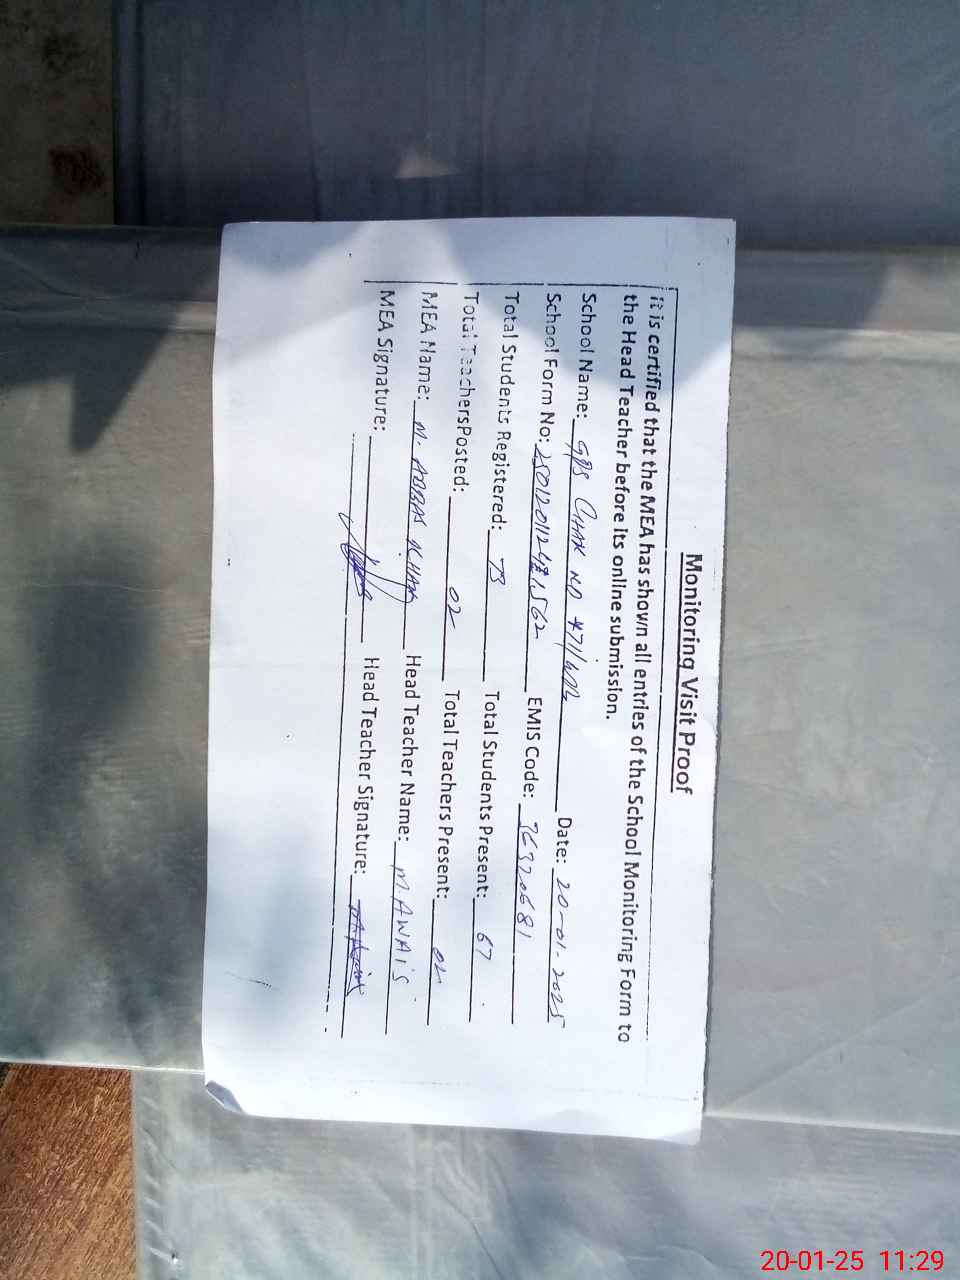 Monitoring Visit Proof
It is certified that the MEA has shown all entries of the School Monitoring Form to
the Head Teacher before its online submission.
School Name: GPS CHAK NO 471/ Date: 20-01-2025
School Form No: EMIS Code: 76320681
Total Students Registered: 73 Total Students Present: 67
Total TeachersPosted: 02 Total Teachers Present: 02
MEA Name: M. ABBAS KHAN Head Teacher Name: M. AWAIS
MEA Signature: Head Teacher Signature:
20-01-25 11:29